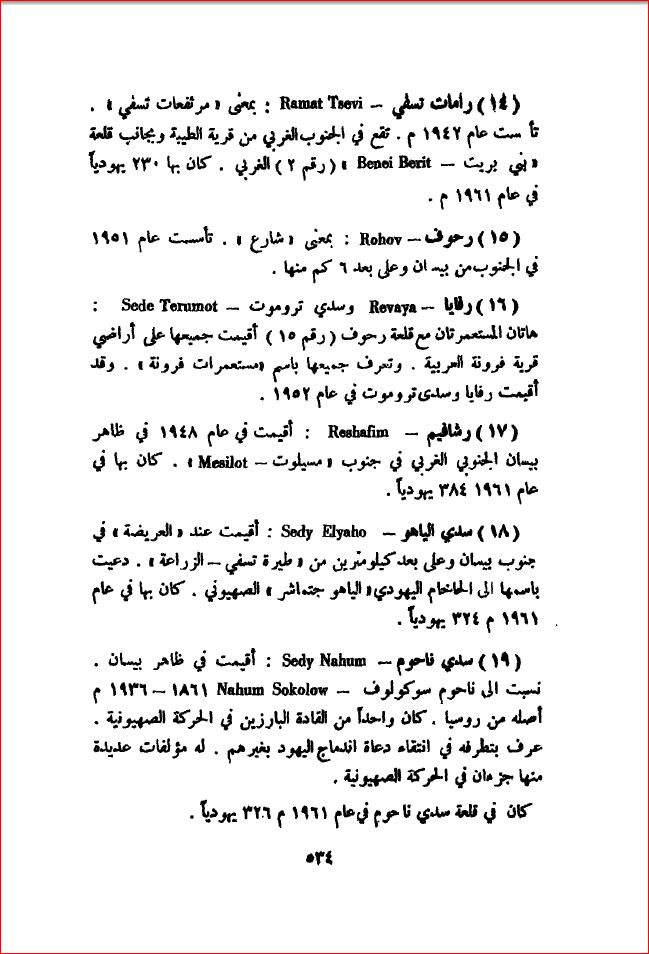 (١٤) رامات تسفي – Ramat Tsevi : بمعنى « مرتفعات تسفي » .
تأ ست عام ١٩٤٢ م . تقع في الجنوب الغربي من قرية الطيبة وبجانب قلعة
« بني بريت – Benei Berit » ( رقم ٢ ) الغربي . كان بها ٢٣٠ يهودياً
في عام ١٩٦١ م .
(١٥) رحوف – Rohov : بمعنى « شارع » . تأسست عام ١٩٥١
في الجنوب من بيسان وعلى بعد ٦ كم منها .
(١٦) رفايا – Revaya وسدي تروموت – Sede Terumot :
هاتان المستعمرتان مع قلعة رحوف ( رقم ١٥ ) أقيمت جميعها على أراضي
قرية فرونة العربية . وتعرف جميعها باسم « مستعمرات فرونة » . وقد
أقيمت رفايا وسدى تروموت في عام ١٩٥٢ .
(١٧) رشافيم – Reshafim : أقيمت في عام ١٩٤٨ في ظاهر
بيسان الجنوبي الغربي في جنوب « مسيلوت – Mesilot » . كان بها في
عام ١٩٦١ ٣٨٤ يهودياً .
(١٨) سدي الياهو – Sedy Elyaho : أقيمت عند « العريضة » في
جنوب بيسان وعلى بعد كيلومترين من « طيرة تسفي – الزراعة » . دعيت
باسمها الى الحاخام اليهودي « الياهو جتماشر » الصهيوني . كان بها في عام
١٩٦١ م ٣٢٤ يهودياً .
(١٩) سدي ناحوم – Sedy Nahum : أقيمت في ظاهر بيسان .
نسبت الى ناحوم سوكولوف – Nahum Sokolow ١٨٦١ – ١٩٣٦ م
أصله من روسيا . كان واحداً من القادة البارزين في الحركة الصهيونية .
عرف بتطرفه في انتقاء دعاة اندماج اليهود بغيرهم . له مؤلفات عديدة
منها جزءان في الحركة الصهيونية .
كان في قلعة سدي ناحوم في عام ١٩٦١ م ٣٢٦ يهودياً .
٥٣٤